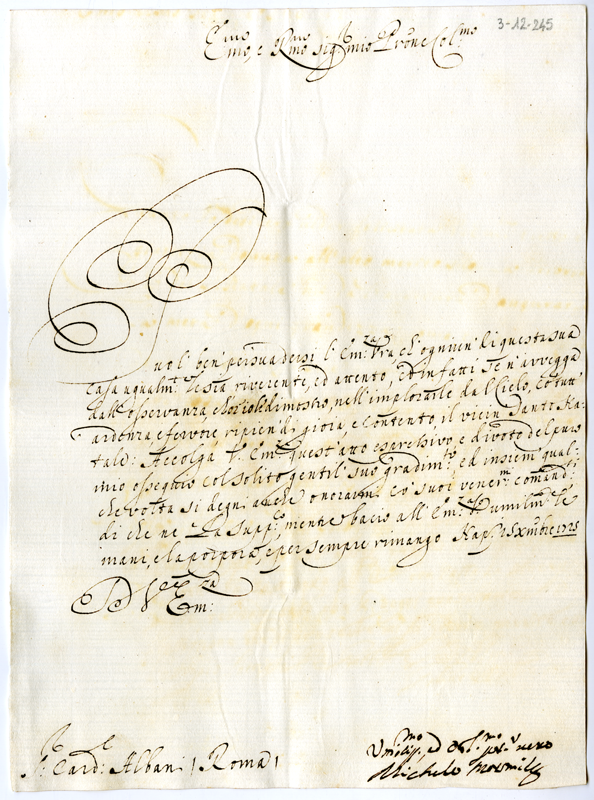 3-12-245
Emo, e Rmo Sig.r mio Prōne Col.mo
Puol' ben persuadersi l'Em.za Vra, ch'ogniun' di questa sua
casa ugualm.te le sia riverente, ed attento, ed in fatti se n'avvegga
dall'osservanza, ch'io li dimostro, nell'implorarle dal Cielo, cō tutt'
ardenza, e fervore ripien' di gioia, e contento, il vicin' Santo Na:
tale: Accolga l'Em. quest'atto espressivo e divoto del puro
mio ossequio col solito gentil' suo gradim.to, ed insiem' qual=
che volta si degni anche onorarmi co' suoi vener. comandi
di che ne La supp.co, mentre bacio all'Em.za Sua umilm.te le
mani, e la porpora, e per sempre rimango Nap. 15 Xmbre 1725
Di V. Em.za
S.r Card. Albani / Roma /
Umiliss.mo ed Obl.mo ser.r vero
Michele